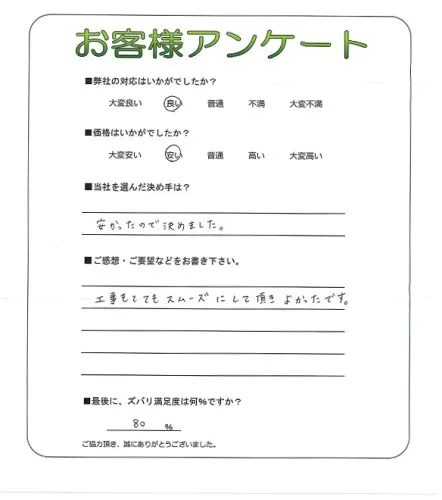 お客様アンケート
■弊社の対応はいかがでしたか？
大変良い 良い 普通 不満 大変不満
■価格はいかがでしたか？
大変安い 安い 普通 高い 大変高い
■当社を選んだ決め手は？
安かったので決めました。
■ご感想・ご要望などをお書き下さい。
工事もとてもスムーズにして頂きよかったです。
■最後に、ズバリ満足度は何%ですか？
80 %
ご協力頂き、誠にありがとうございました。